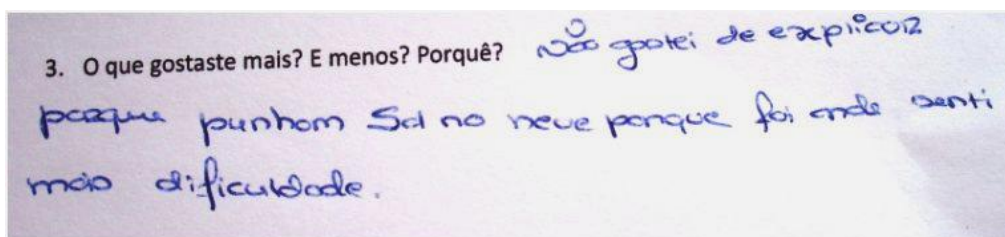 3. O que gostaste mais? E menos? Porquê? não gostei de explicar
porque punham Sal no neve porque foi onde senti
mais dificuldade.